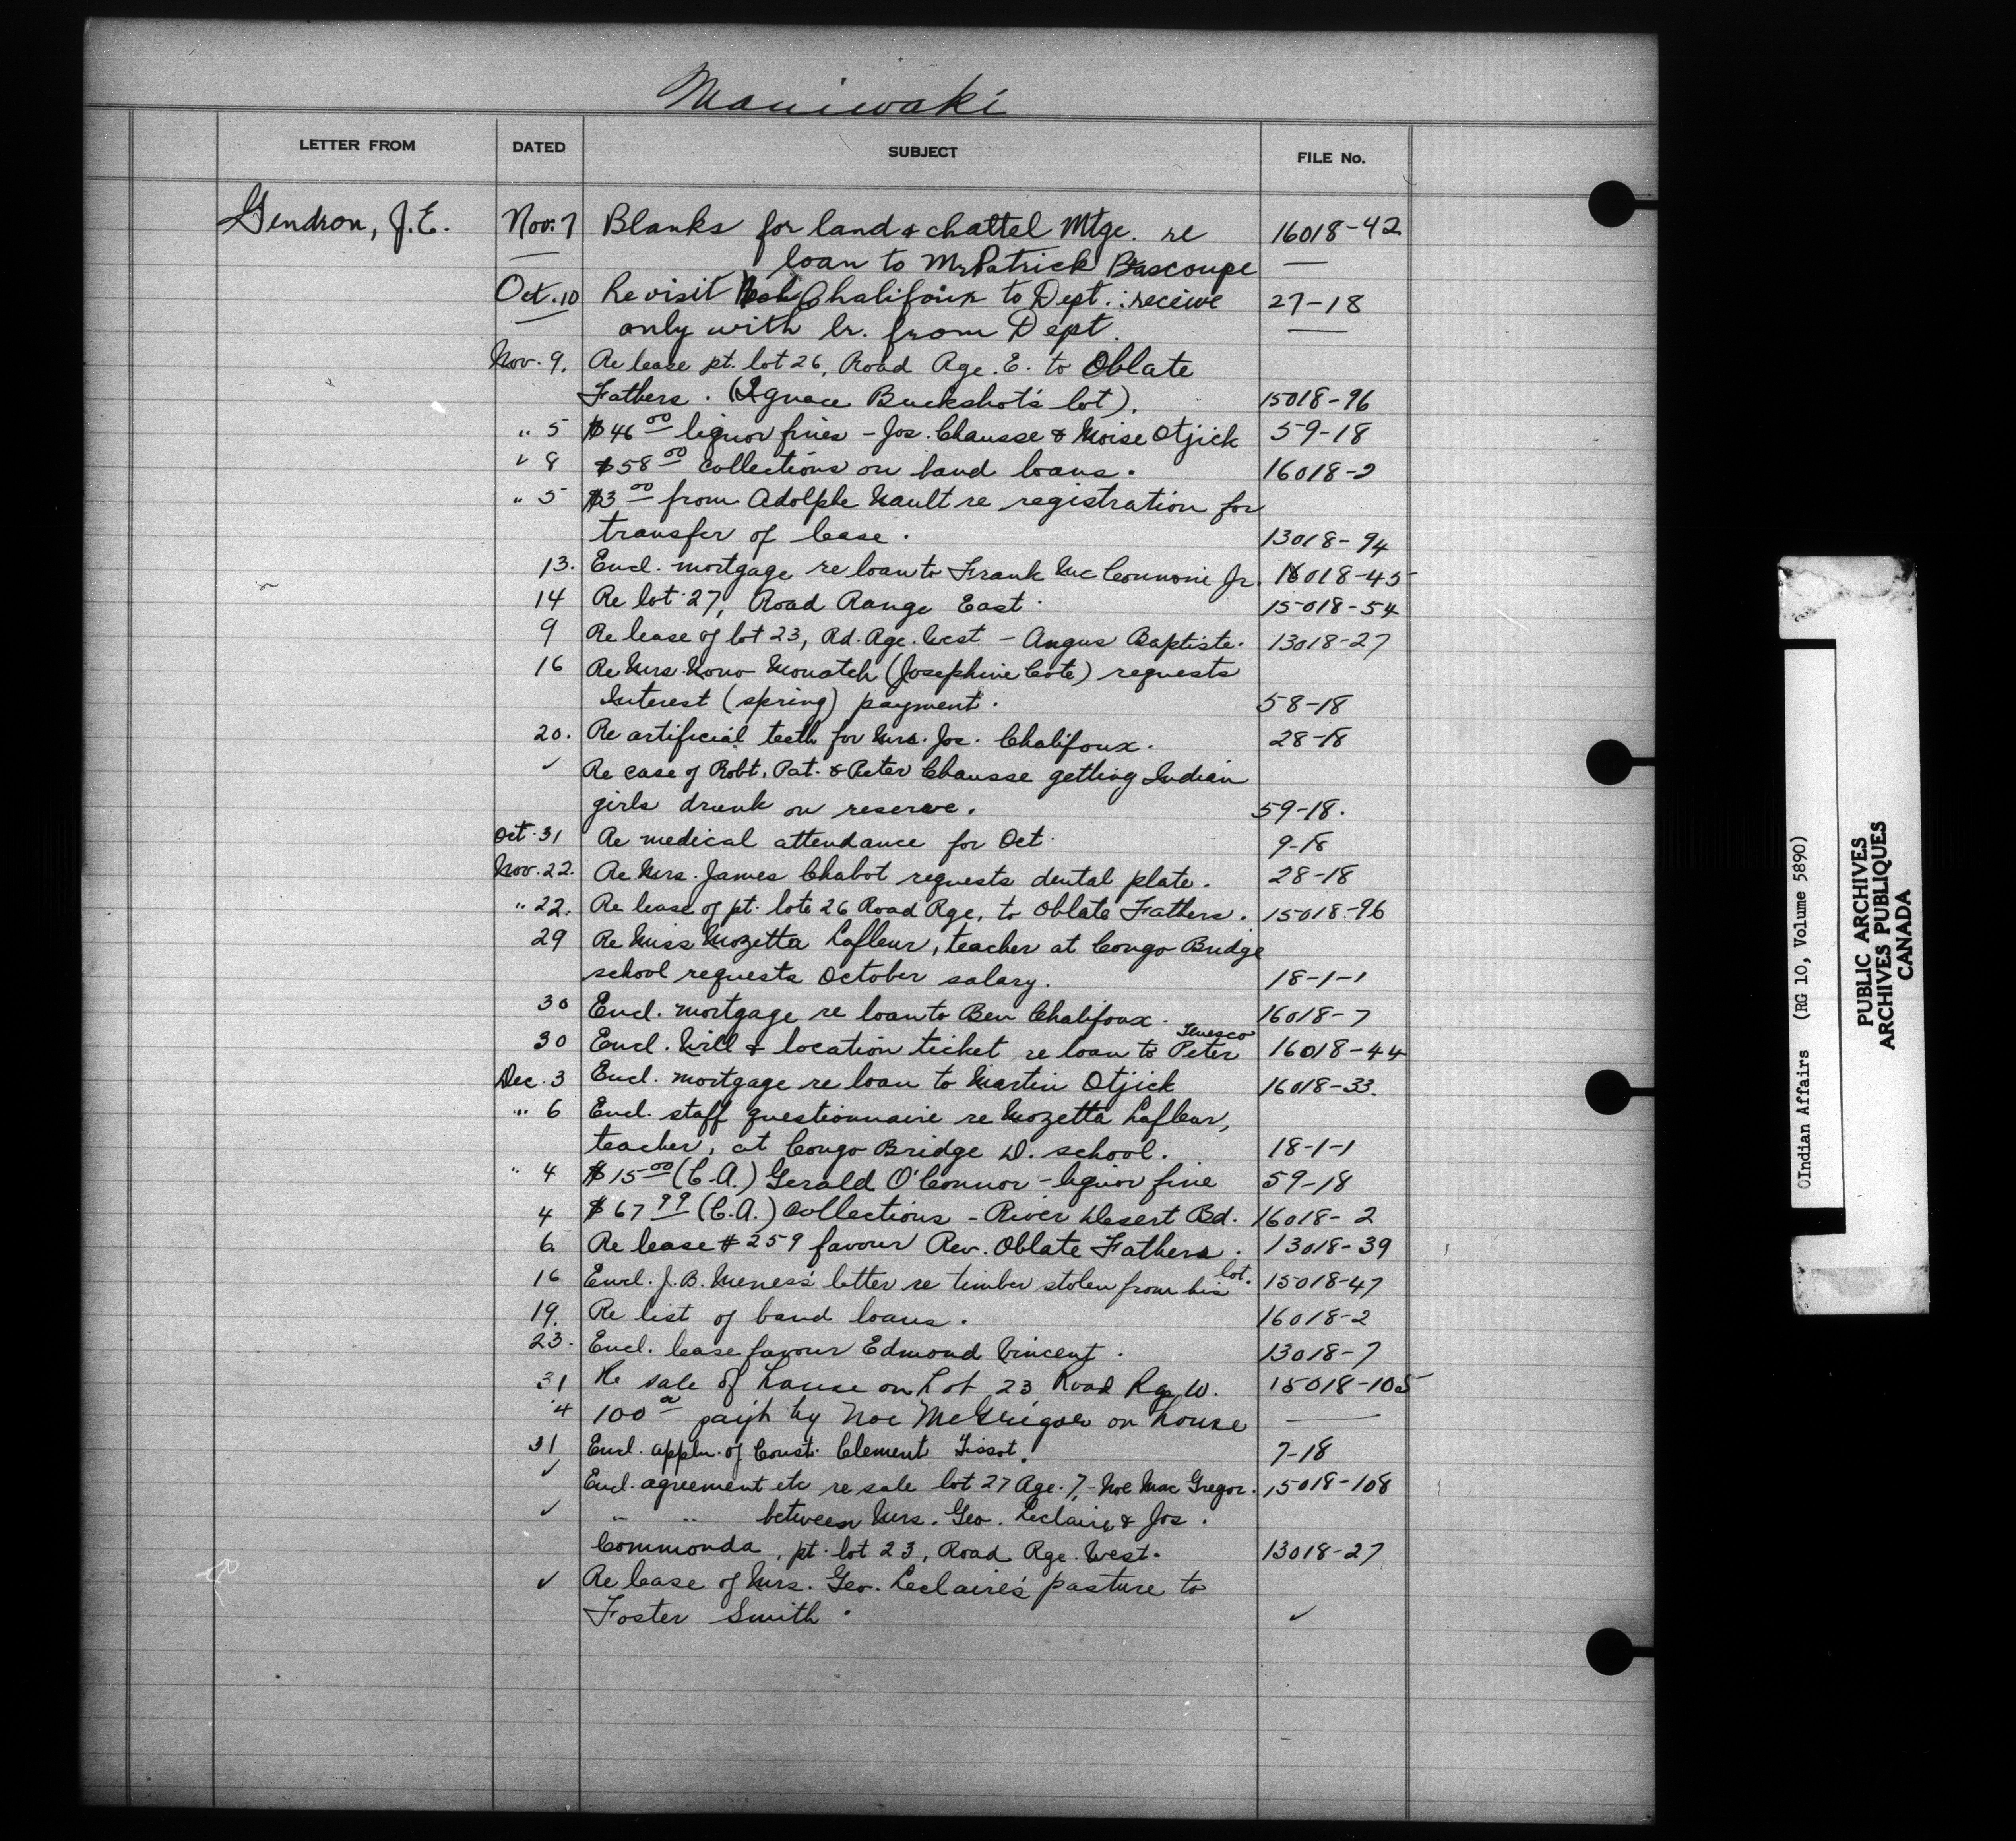 Maniwaki
LETTER FROM DATED SUBJECT FILE No.
Gendron, J.E. Nov. 7 Blanks for land & chattel Mtge. re 16018-42
— loan to Mr Patrick Bascoupe —
Oct. 10 Re visit Chalifoux to Dept.: receive 27-18
— only with lr. from Dept. —
Nov. 9. Re lease pt. lot 26, Road Rge. E. to Oblate
Fathers. (Ignace Buckshot's lot). 15018-96
" 5 $46.00 liquor fines - Jos. Chausse & Moise Otjick 59-18
✓ 8 $58.00 collections on band loans. 16018-2
" 5 $3.00 from Adolphe Nault re registration for
transfer of lease. 13018-94
13. Encl. mortgage re loan to Frank Mc Connoni Jr. 16018-45
14 Re lot 27, Road Range East. 15018-54
9 Re lease of lot 23, Rd. Rge. West - Angus Baptiste. 13018-27
16 Re Mrs. Nono Monatch (Josephine Cote) requests
Interest (spring) payment. 58-18
20. Re artificial teeth for Mrs. Jos. Chalifoux. 28-18
✓ Re case of Robt. Pat. & Peter Chausse getting Indian
girls drunk on reserve. 59-18.
Oct. 31 Re medical attendance for Oct. 9-18
Nov. 22. Re Mrs. James Chabot requests dental plate. 28-18
" 22. Re lease of pt. lots 26 Road Rge, to Oblate Fathers. 15018-96
29 Re Miss Mozetta Lafleur, teacher at Congo Bridge
school requests October salary. 18-1-1
30 Encl. mortgage re loan to Ben Chalifoux. 16018-7
Tenesco
30 Encl. Will & location ticket re loan to Peter 16018-44
Dec. 3 Encl. mortgage re loan to Martin Otjick 16018-33.
" 6 Encl. staff questionnaire re Mozetta Lafleur,
teacher, at Congo Bridge D. school. 18-1-1
" 4 $15.00 (C.A.) Gerald O'Connor - liquor fine 59-18
4 $67.99 (C.A.) Collections - River Desert Bd. 16018-2
6 Re lease #259 favour Rev. Oblate Fathers. 13018-39
16 Encl. J.B. Meness' letter re timber stolen from his lot. 15018-47
19. Re list of band loans. 16018-2
23. Encl. lease favour Edmond Vincent. 13018-7
31 Re sale of house on Lot 23 Road Rge W. 15018-105
"4 100.00 paid by Noe McGregor on house —
31 Encl. appln. of Const. Clement Tissot. 7-18
✓ Encl. agreement etc re sale lot 27 Rge. 7, - Noe Mac Gregor. 15018-108
✓ " " between Mrs. Geo. Leclaire & Jos.
Commonda, pt. lot 23, Road Rge. West. 13018-27
✓ Re lease of Mrs. Geo. Leclaire's pasture to
Foster Smith. ✓
Indian Affairs (RG 10, Volume 5890)
PUBLIC ARCHIVES
ARCHIVES PUBLIQUES
CANADA